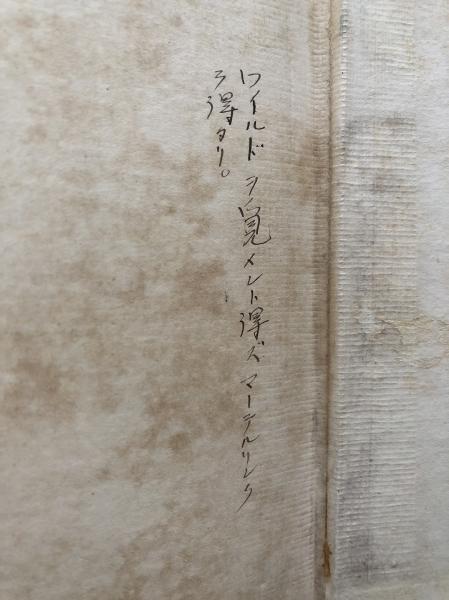 ワイルドヲ覓メント得ズマーテルリンク
ヲ得タリ。